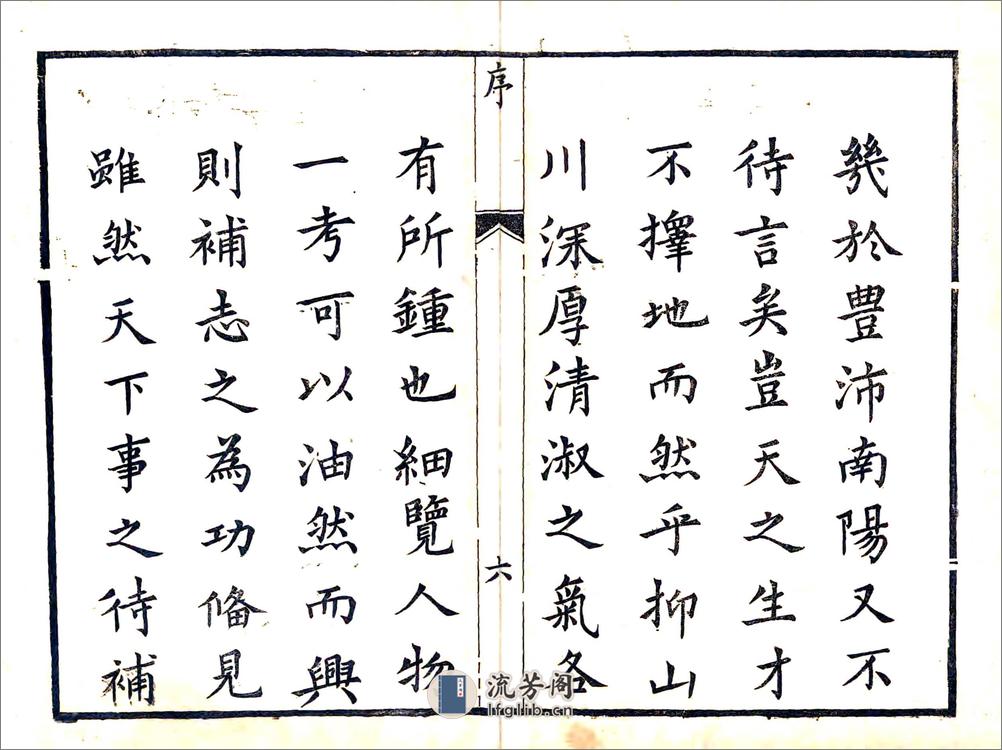 幾於豐沛南陽又不
待言矣豈天之生才
不擇地而然乎抑山
川深厚清淑之氣各
序
六
有所鍾也細覽人物
一考可以油然而興
則補志之為功俻見
雖然天下事之待補
流芳阁
lfglib.cn